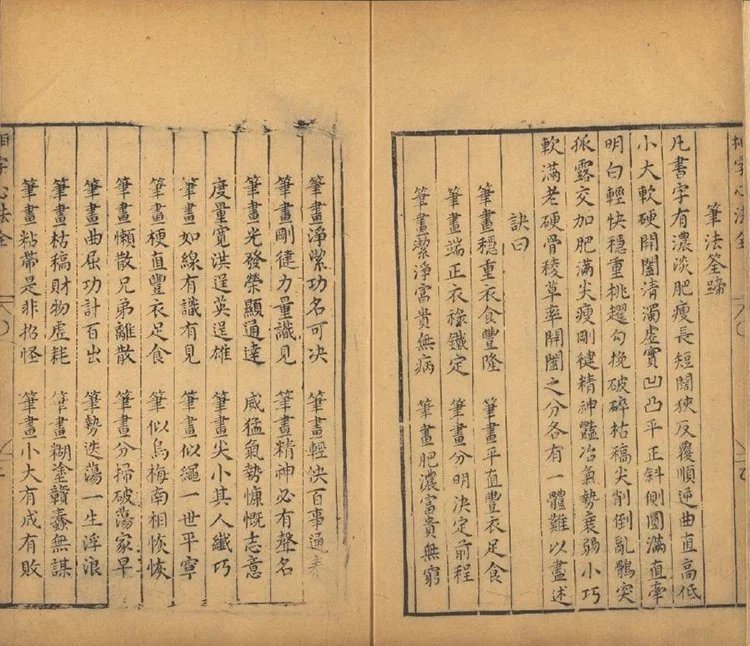 相字心法全
筆法筌蹄
凡書字有濃淡肥瘦長短闊狹反覆順逆曲直高低
小大軟硬開闔清濁虛實凹凸平正斜側圓滿直牽
明白輕快穩重挑趯勾挽破碎枯稿尖削倒亂鶻突
孤露交加肥滿尖瘦剛健精神豔冶氣勢衰弱小巧
軟滿老硬骨稜草率開闔之分各有一體難以盡述
訣曰
筆畫穩重衣食豐隆 筆畫平直豐衣足食
筆畫端正衣祿鐵定 筆畫分明決定前程
筆畫潔淨富貴無病 筆畫肥濃富貴無窮
筆畫淨潔功名可決 筆畫輕決百事通
筆畫剛健力量識見 筆畫精神必有聲名
筆畫光發榮顯通達 威猛氣勢慷慨志意
度量寬洪逞英逞雄 筆畫尖小其人纖巧
筆畫如線有識有見 筆畫似繩一世平寧
筆畫梗直豐衣足食 筆似烏梅南相恢恢
筆畫懶散兄弟離散 筆畫分掃破蕩家早
筆畫曲屈功計百出 筆勢迭蕩一生浮浪
筆畫枯稿財物虛耗 筆畫糊塗贛蠢無謀
筆畫粘帶是非招怪 筆畫小大有成有敗
相字心法全